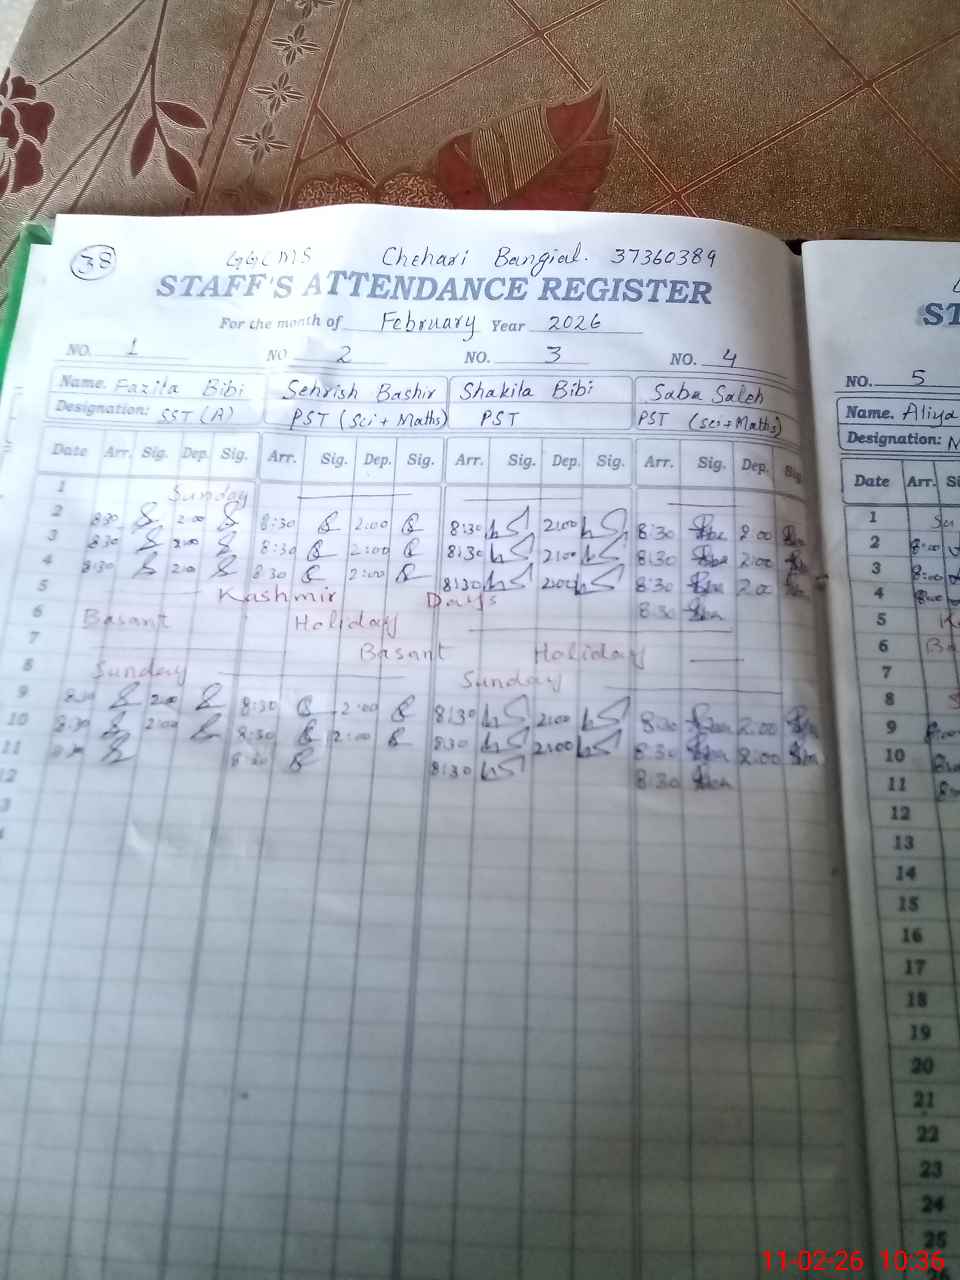 38
GGCMS Chehari Bangial. 37360389
STAFF'S ATTENDANCE REGISTER
For the month of February Year 2026
NO. 1 NO 2 NO. 3 NO. 4
Name. Fazila Bibi Sehrish Bashir Shakila Bibi Saba Saleh
Designation: SST (A) PST (Sci + Maths) PST PST (sci + Maths)
Date Arr. Sig. Dep. Sig. Arr. Sig. Dep. Sig. Arr. Sig. Dep. Sig. Arr. Sig. Dep. Sig.
1 Sunday
2 8:30 2:00 8:30 2:00 8:30 2:00 8:30 2:00
3 8:30 2:00 8:30 2:00 8:30 2:00 8:30 2:00
4 8:30 2:00 8:30 2:00 8:30 2:00 8:30 2:00
5 Kashmir Days 8:30
6 Basant Holiday
7 Basant Holiday
8 Sunday Sunday
9 8:30 2:00 8:30 2:00 8:30 2:00 8:30 2:00
10 8:30 2:00 8:30 2:00 8:30 2:00 8:30 2:00
11 8:30 8:30 8:30 8:30
12
3
ST
NO. 5
Name. Aliya
Designation: M
Date Arr. Si
1 Su
2 8:00
3 8:00
4 8:00
5 K
6 Ba
7
8 S
9
10
11
12
13
14
15
16
17
18
19
20
21
22
23
24
25
11-02-26 10:36